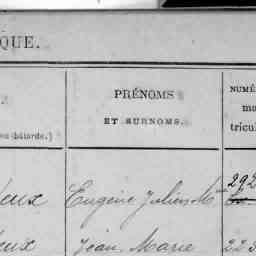 QUE.
PRÉNOMS
ET SURNOMS.
NUMÉ
ma
tricul
(bâtarde.)
eux Eugène Julien M^ie 292
eux Jean Marie 223